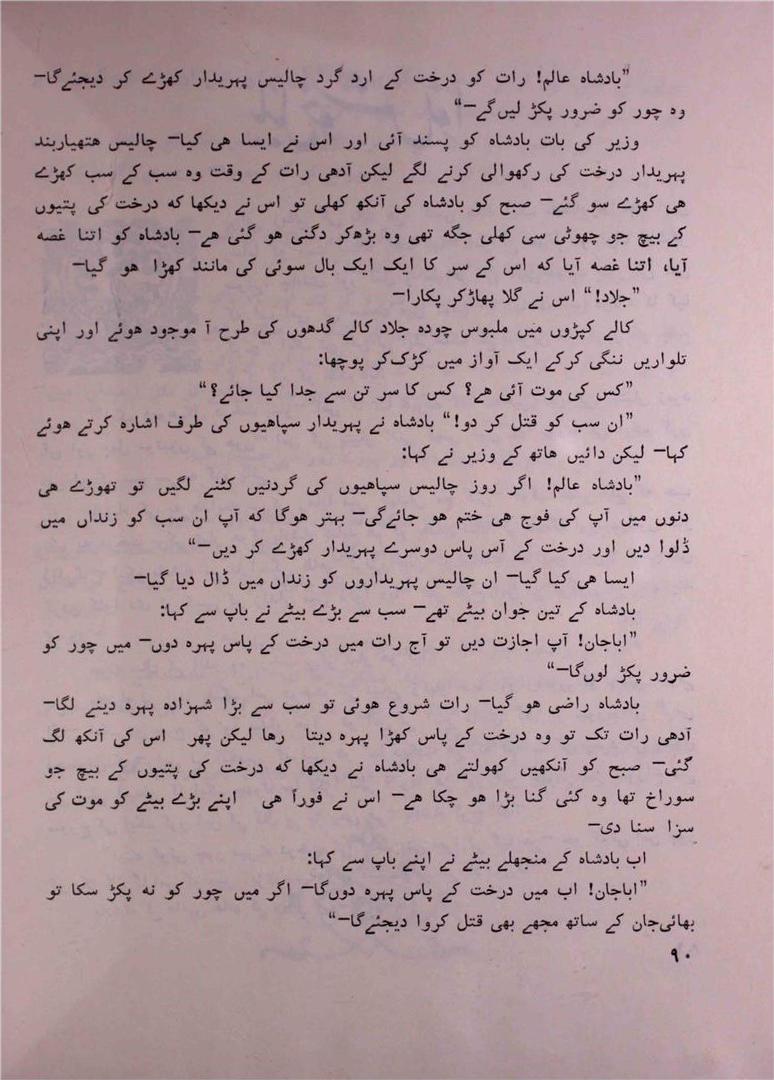 ”بادشاہ عالم! رات کو درخت کے ارد گرد چالیس پہریدار کھڑے کر دیجئے گا—
وہ چور کو ضرور پکڑ لیں گے—“
وزیر کی بات بادشاہ کو پسند آئی اور اس نے ایسا ھی کیا— چالیس ھتھیاربند
پہریدار درخت کی رکھوالی کرنے لگے لیکن آدھی رات کے وقت وہ سب کے سب کھڑے
ھی کھڑے سو گئے— صبح کو بادشاہ کی آنکھ کھلی تو اس نے دیکھا که درخت کی پتیوں
کے بیچ جو چھوٹی سی کھلی جگہ تھی وہ بڑھ کر دگنی ھو گئی ھے— بادشاہ کو اتنا غصه
آیا، اتنا غصه آیا که اس کے سر کا ایک ایک بال سوئی کی مانند کھڑا ھو گیا—
”جلاد!“ اس نے گلا پھاڑ کر پکارا—
کالے کپڑوں میں ملبوس چودہ جلاد کالے گدھوں کی طرح آ موجود ھوئے اور اپنی
تلواریں ننگی کرکے ایک آواز میں کڑک کر پوچھا:
”کس کی موت آئی ھے؟ کس کا سر تن سے جدا کیا جائے؟“
”ان سب کو قتل کر دو!“ بادشاہ نے پہریدار سپاھیوں کی طرف اشارہ کرتے ھوئے
کہا— لیکن دائیں ھاتھ کے وزیر نے کہا:
”بادشاہ عالم! اگر روز چالیس سپاھیوں کی گردنیں کٹنے لگیں تو تھوڑے ھی
دنوں میں آپ کی فوج ھی ختم ھو جائے گی— بہتر ھوگا که آپ ان سب کو زنداں میں
ڈلوا دیں اور درخت کے آس پاس دوسرے پہریدار کھڑے کر دیں—“
ایسا ھی کیا گیا— ان چالیس پہریداروں کو زنداں میں ڈال دیا گیا—
بادشاہ کے تین جوان بیٹے تھے— سب سے بڑے بیٹے نے باپ سے کہا:
”اباجان! آپ اجازت دیں تو آج رات میں درخت کے پاس پہرہ دوں— میں چور کو
ضرور پکڑ لوں گا—“
بادشاہ راضی ھو گیا— رات شروع ھوئی تو سب سے بڑا شہزادہ پہرہ دینے لگا—
آدھی رات تک تو وہ درخت کے پاس کھڑا پہرہ دیتا رھا لیکن پھر اس کی آنکھ لگ
گئی— صبح کو آنکھیں کھولتے ھی بادشاہ نے دیکھا که درخت کی پتیوں کے بیچ جو
سوراخ تھا وہ کئی گنا بڑا ھو چکا ھے— اس نے فوراً ھی اپنے بڑے بیٹے کو موت کی
سزا سنا دی—
اب بادشاہ کے منجھلے بیٹے نے اپنے باپ سے کہا:
”اباجان! اب میں درخت کے پاس پہرہ دوں گا— اگر میں چور کو نه پکڑ سکا تو
بھائی جان کے ساتھ مجھے بھی قتل کروا دیجئے گا—“
۹۰